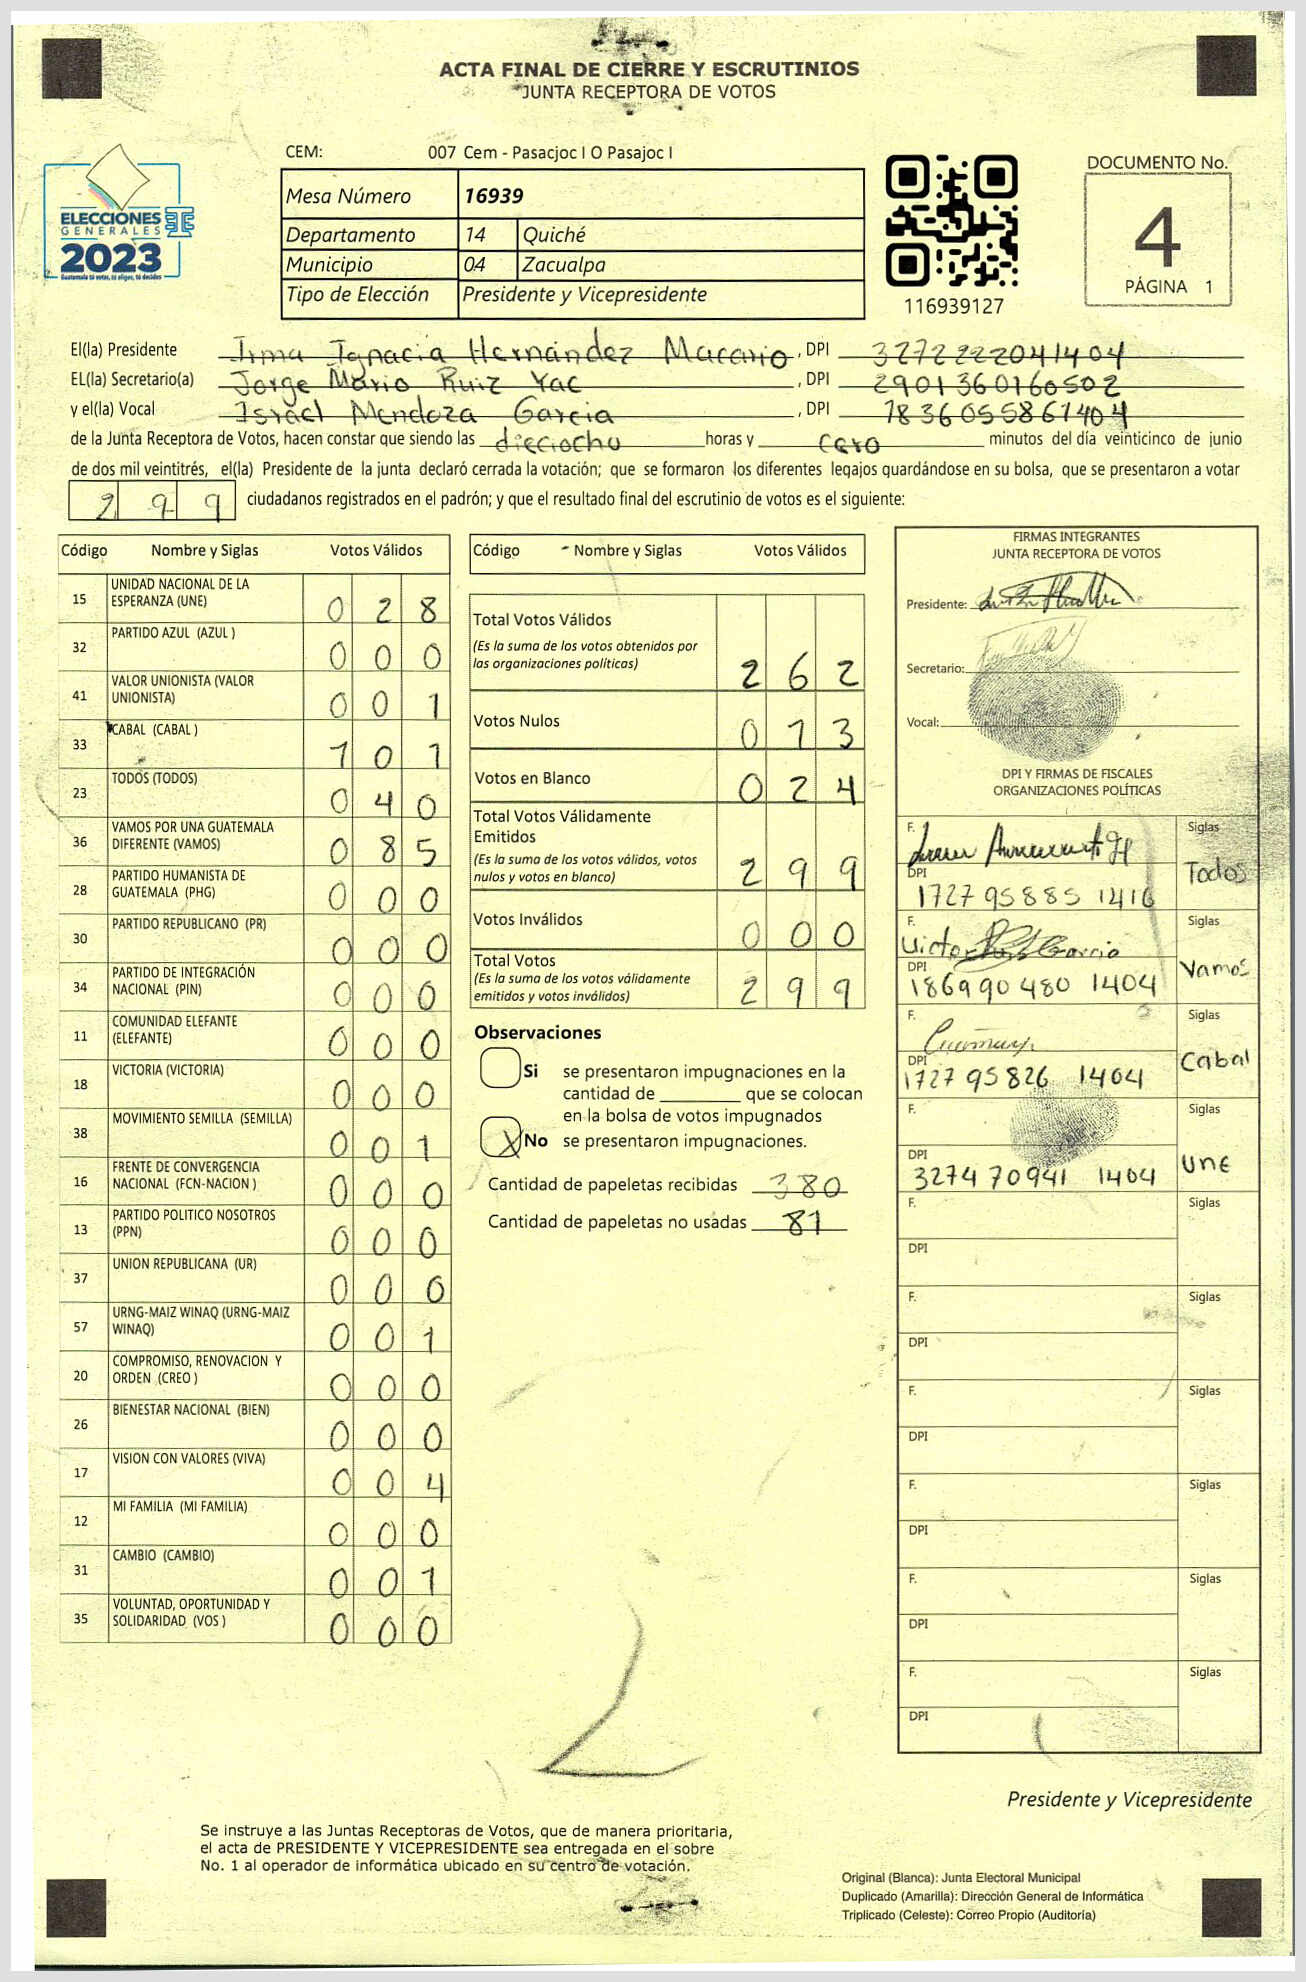 ACTA FINAL DE CIERRE Y ESCRUTINIOS
JUNTA RECEPTORA DE VOTOS
CEM: 007 Cem - Pasacjoc I O Pasajoc I
ELECCIONES
GENERALES
2023
Guatemala tú votas, tú eliges, tú decides
Mesa Número 16939
Departamento 14 Quiché
Municipio 04 Zacualpa
Tipo de Elección Presidente y Vicepresidente
116939127
DOCUMENTO No.
4
PÁGINA 1
El(la) Presidente Irma Ignacia Hernández Macario, DPI 3272222041404
EL(la) Secretario(a) Jorge Mario Ruiz Yac, DPI 2901360160502
y el(la) Vocal Israel Mendoza Garcia, DPI 1836055861404
de la Junta Receptora de Votos, hacen constar que siendo las dieciocho horas y cero minutos del día veinticinco de junio
de dos mil veintitrés, el(la) Presidente de la junta declaró cerrada la votación; que se formaron los diferentes legajos guardándose en su bolsa, que se presentaron a votar
299 ciudadanos registrados en el padrón; y que el resultado final del escrutinio de votos es el siguiente:
Código Nombre y Siglas Votos Válidos
15 UNIDAD NACIONAL DE LA ESPERANZA (UNE) 028
32 PARTIDO AZUL (AZUL ) 000
41 VALOR UNIONISTA (VALOR UNIONISTA) 001
33 CABAL (CABAL ) 101
23 TODOS (TODOS) 040
36 VAMOS POR UNA GUATEMALA DIFERENTE (VAMOS) 085
28 PARTIDO HUMANISTA DE GUATEMALA (PHG) 000
30 PARTIDO REPUBLICANO (PR) 000
34 PARTIDO DE INTEGRACIÓN NACIONAL (PIN) 000
11 COMUNIDAD ELEFANTE (ELEFANTE) 000
18 VICTORIA (VICTORIA) 000
38 MOVIMIENTO SEMILLA (SEMILLA) 001
16 FRENTE DE CONVERGENCIA NACIONAL (FCN-NACION ) 000
13 PARTIDO POLITICO NOSOTROS (PPN) 000
37 UNION REPUBLICANA (UR) 000
57 URNG-MAIZ WINAQ (URNG-MAIZ WINAQ) 001
20 COMPROMISO, RENOVACION Y ORDEN (CREO ) 000
26 BIENESTAR NACIONAL (BIEN) 000
17 VISION CON VALORES (VIVA) 004
12 MI FAMILIA (MI FAMILIA) 000
31 CAMBIO (CAMBIO) 001
35 VOLUNTAD, OPORTUNIDAD Y SOLIDARIDAD (VOS ) 000
Código Nombre y Siglas Votos Válidos
Total Votos Válidos
(Es la suma de los votos obtenidos por
las organizaciones políticas) 262
Votos Nulos 013
Votos en Blanco 024
Total Votos Válidamente
Emitidos
(Es la suma de los votos válidos, votos
nulos y votos en blanco) 299
Votos Inválidos 000
Total Votos
(Es la suma de los votos válidamente
emitidos y votos inválidos) 299
Observaciones
Si se presentaron impugnaciones en la
cantidad de ________ que se colocan
en la bolsa de votos impugnados
X No se presentaron impugnaciones.
Cantidad de papeletas recibidas 380
Cantidad de papeletas no usadas 81
FIRMAS INTEGRANTES
JUNTA RECEPTORA DE VOTOS
Presidente:
Secretario:
Vocal:
DPI Y FIRMAS DE FISCALES
ORGANIZACIONES POLÍTICAS
F. Siglas
Todos
DPI
1727 95885 1416
F. Victor Garcia Siglas
Vamos
DPI
186990480 1404
F. Siglas
Cabal
DPI
1727 95826 1404
F. Siglas
UNE
DPI
3274 70941 1404
F. Siglas
DPI
F. Siglas
DPI
F. Siglas
DPI
F. Siglas
DPI
F. Siglas
DPI
F. Siglas
DPI
Presidente y Vicepresidente
Se instruye a las Juntas Receptoras de Votos, que de manera prioritaria,
el acta de PRESIDENTE Y VICEPRESIDENTE sea entregada en el sobre
No. 1 al operador de informática ubicado en su centro de votación.
Original (Blanca): Junta Electoral Municipal
Duplicado (Amarilla): Dirección General de Informática
Triplicado (Celeste): Correo Propio (Auditoría)